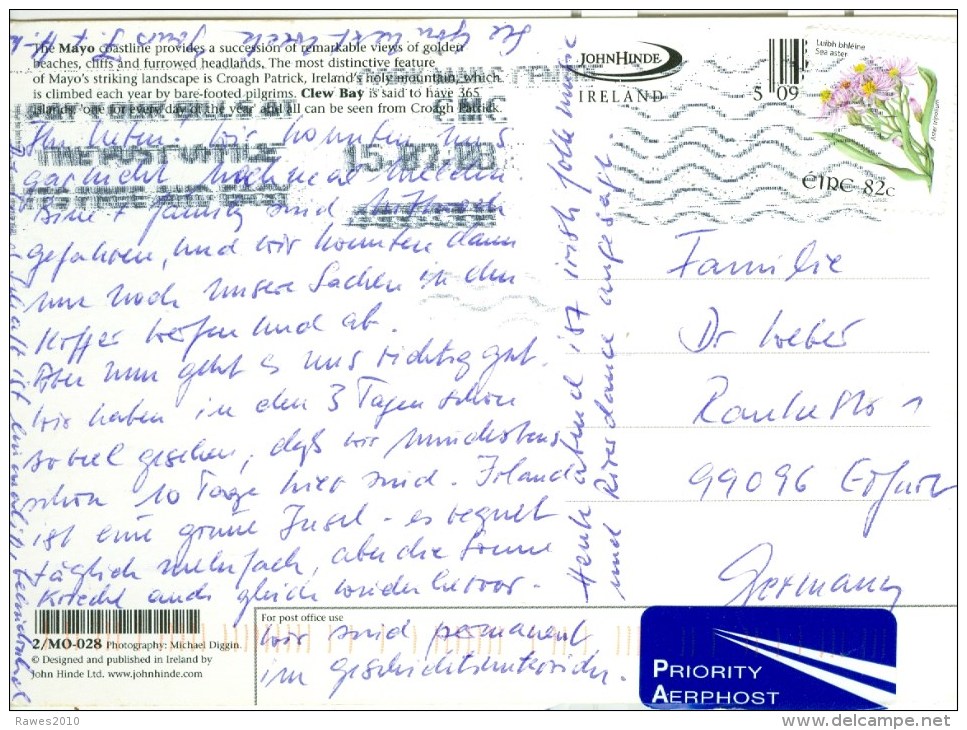 The Mayo coastline provides a succession of remarkable views of golden
beaches, cliffs and furrowed headlands. The most distinctive feature
of Mayo's striking landscape is Croagh Patrick, Ireland's holy mountain, which
is climbed each year by bare-footed pilgrims. Clew Bay is said to have 365
islands, 'one for every day of the year' and all can be seen from Croagh Patrick.
JOHN HINDE
IRELAND
5 09
Luibh bhléine
Sea aster
ÉIRE 82c
Ihr Lieben, wir konnten uns
garnicht nochmal melden.
+ family sind
gefahren, und wir konnten dann
nur noch unsere Sachen in den
Koffer werfen und ab.
Aber nun geht es uns richtig gut.
Wir haben in den 3 Tagen schon
soviel gesehen, daß wir mindestens
schon 10 Tage hier sind. Irland
ist eine grüne Insel - es regnet
täglich mehrfach, aber die Sonne
kriecht auch gleich wieder hervor.
Wir sind permanent
im Geschichtsunterricht.
Heute abend ist irish folk music
und Riverdance angesagt.
See you next week
Familie
Dr Weber
99096 Erfurt
Germany
2/MO-028 Photography: Michael Diggin.
© Designed and published in Ireland by
John Hinde Ltd. www.johnhinde.com
For post office use
PRIORITY
AERPHOST
Rawes2010